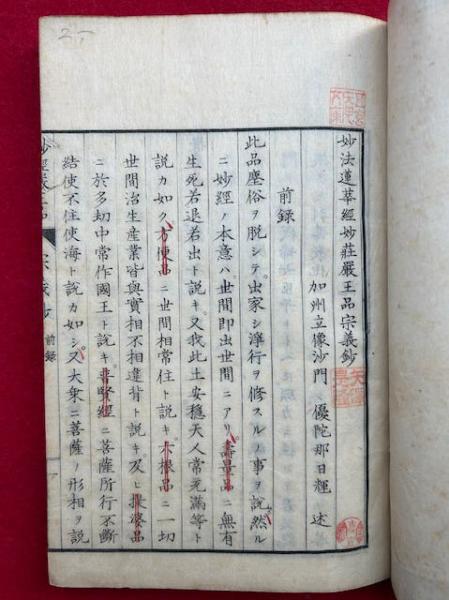 妙法蓮華經妙莊嚴王品宗義鈔
加州立像沙門 優陀那日輝 述
前録
此品塵俗ヲ脱シテ出家シ淨行ヲ修スルノ事ヲ説然ル
ニ妙經ノ本意ハ世間即出世間ニアリ壽量品ニ無有
生死若退若出ト説キ又我此土安穏天人常充滿等ト
説カ如ク方便品ニ世間相常住ト説キ六根品ニ一切
世間治生産業皆與實相不相違背ト説キ及ヒ提婆品
ニ於多劫中常作國王ト説キ普賢經ニ菩薩所行不斷
結使不住使海ト説カ如シ又大乗ニ菩薩ノ形相ヲ説
妙經嚴王品 宗義鈔 前録